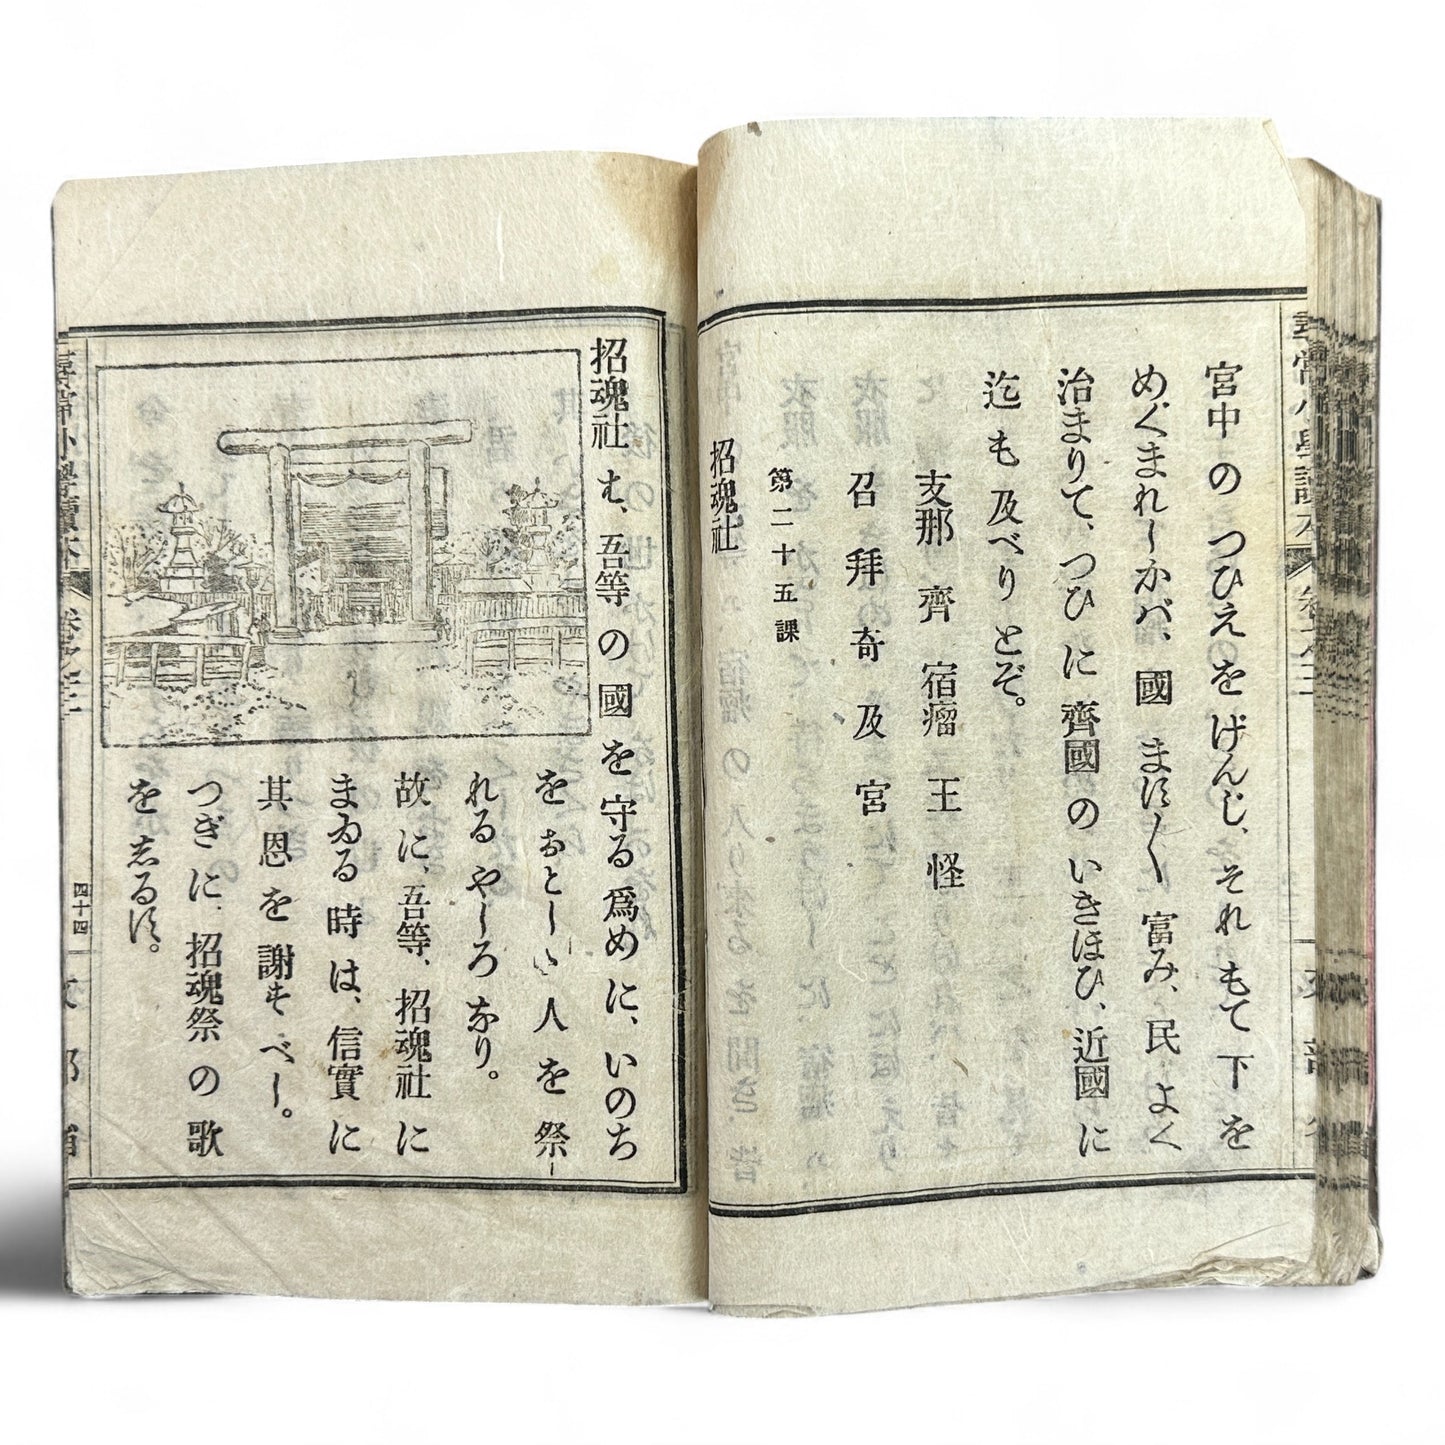 宮中のつひえをげんじ、それもて下を
めぐまれしかバ、國ます〳〵富み、民よく
治まりて、つひに齊國のいきほひ、近國に
迄も及べりとぞ。
支那 齊 宿瘤 王 怪
召 拜 奇 及 宮
第二十五課
招魂社
招魂社は、吾等の國を守る爲めに、いのち
をおとしゝ人を祭
れるやしろなり。
故に、吾等、招魂社に
まゐる時は、信實に
其恩を謝すべし。
つぎに、招魂祭の歌
をしるす。
尋常小學讀本
四十四
文部省